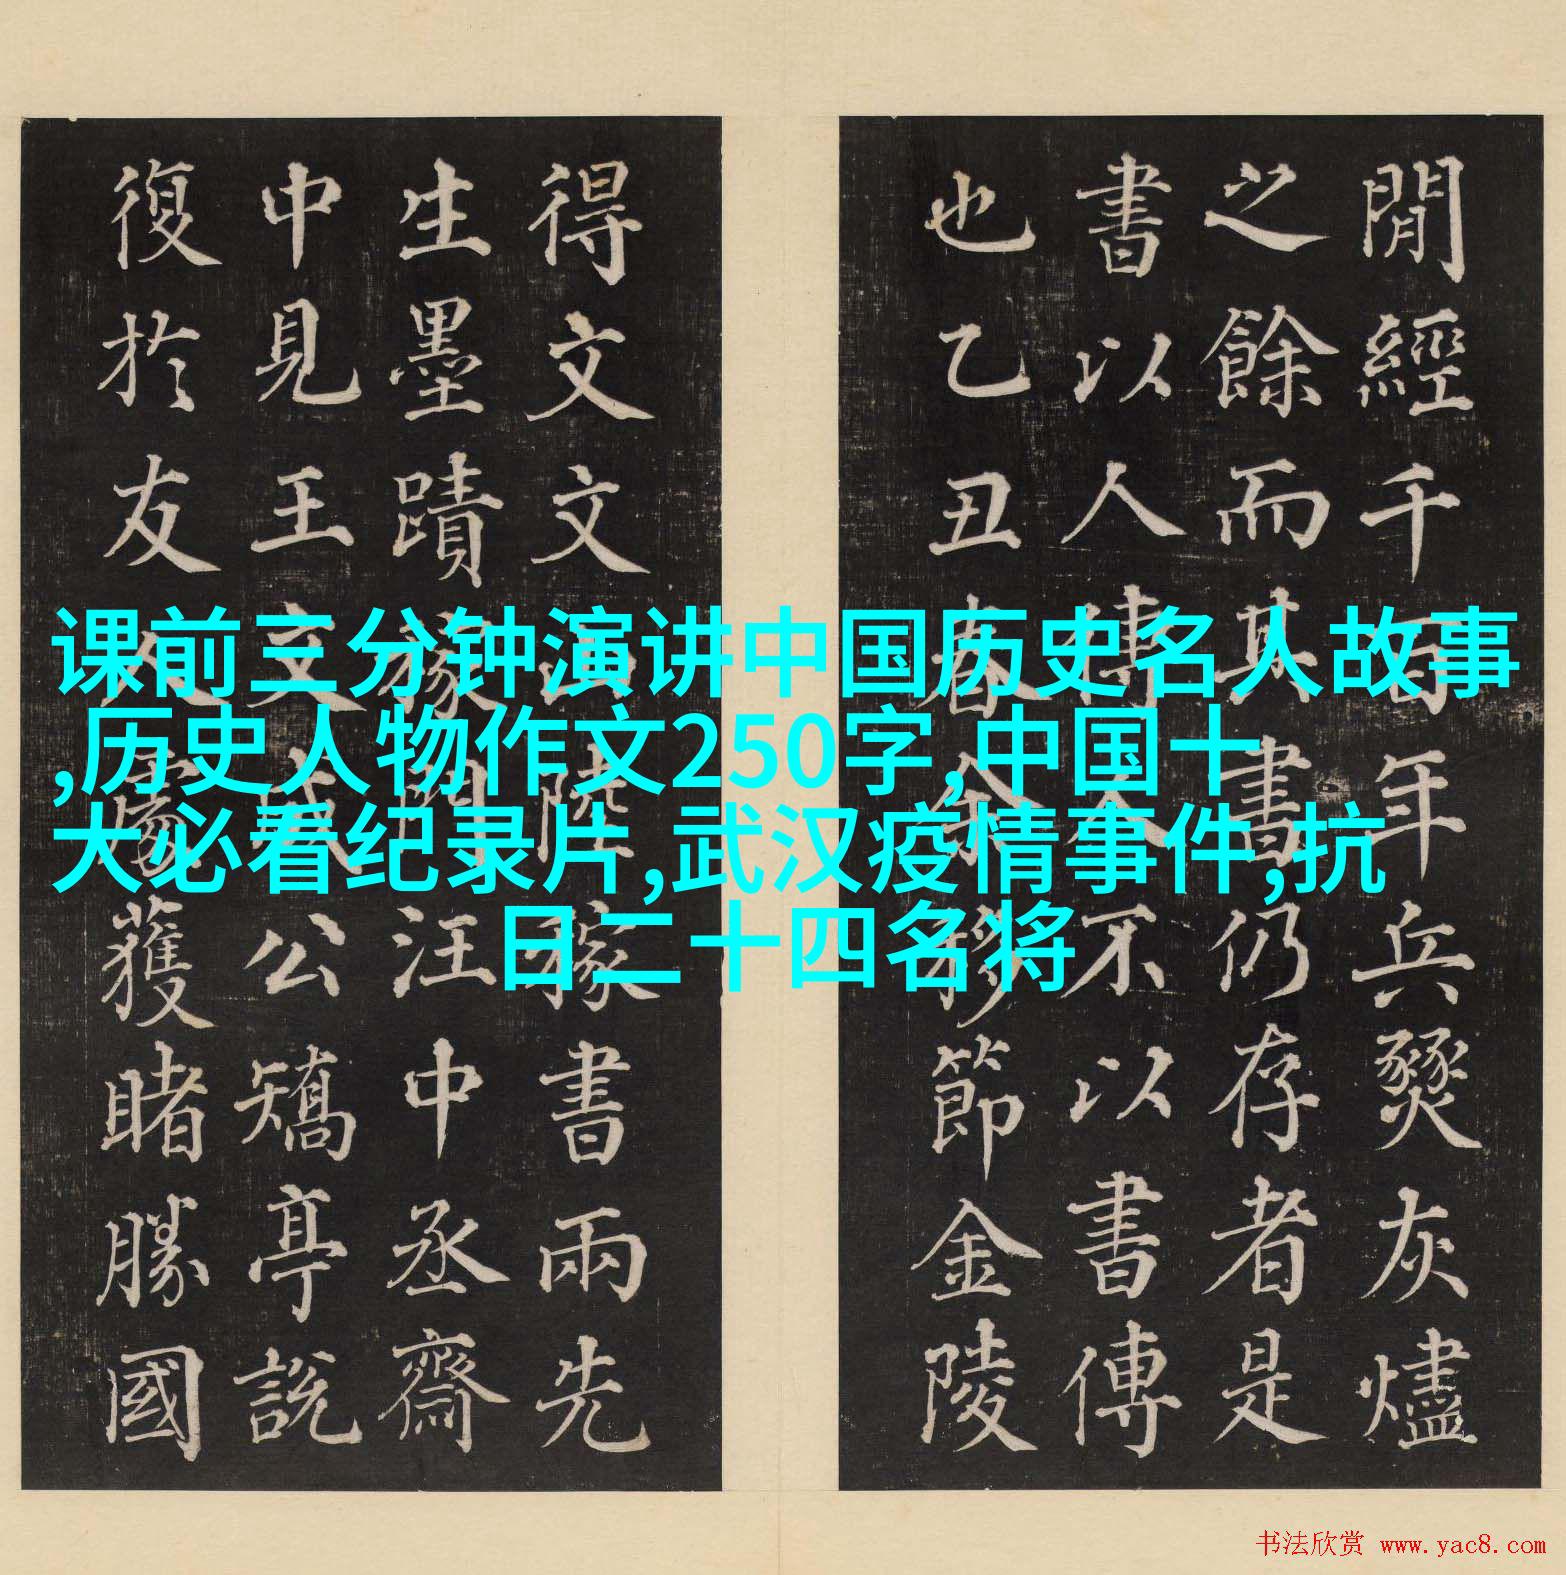 课前三分钟演讲中国历史名人故事
,历史人物作文250字,中国十
大必看纪录片,武汉疫情事件,抗
日二十四名将
閒經千百年兵燹灰燼
之餘而其書仍存者是
書以人傳人不以書傳
也乙丑春余移節金陵
得文文山陸稼書兩先
生墨蹟汪中丞齋
中見王文成公矯亭說
復於友人處獲睹勝國
书法欣赏 www.yac8.com